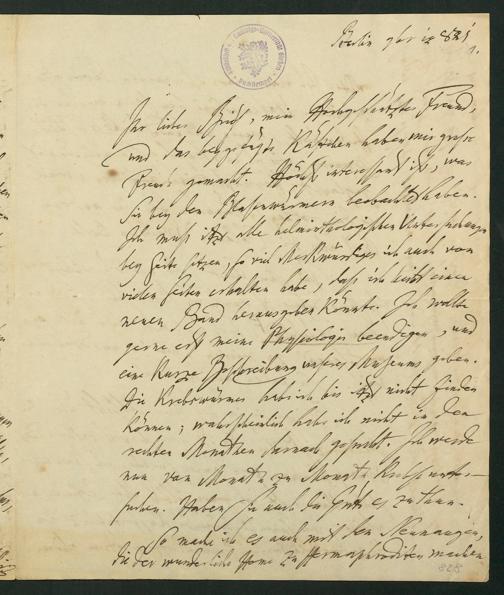 Berlin 9br 12 1821.
Ihr lieber Brief, mein Hochgeschätzter Freund,
und das beygefügte Kästchen haben mir große
Freude gemacht. Höchst interessant ist, was
Sie bey den Blasenwürmern beobachtet haben.
Ich muß itzt alle helminthologischen Untersuchungen
bey Seite setzen, so viel Merkwürdiges ich auch von
vielen Seiten erhalten habe, daß ich leicht einen
neuen Band herausgeben könnte. Ich wollte
gerne erst meine Physiologie beendigen, und
eine kurze Beschreibung unseres Museums geben.
Die Krebswürmer hab ich bis itzt nicht finden
können; wahrscheinlich habe ich nicht in den
rechten Monathen darnach gesucht. Ich werde
nun von Monath zu Monath Krebse unter-
suchen. Haben Sie auch die Güte es zu thun.
So mache ich es auch mit den Neunaugen,
die der wunderliche Home zu Hermaphroditen machen
828